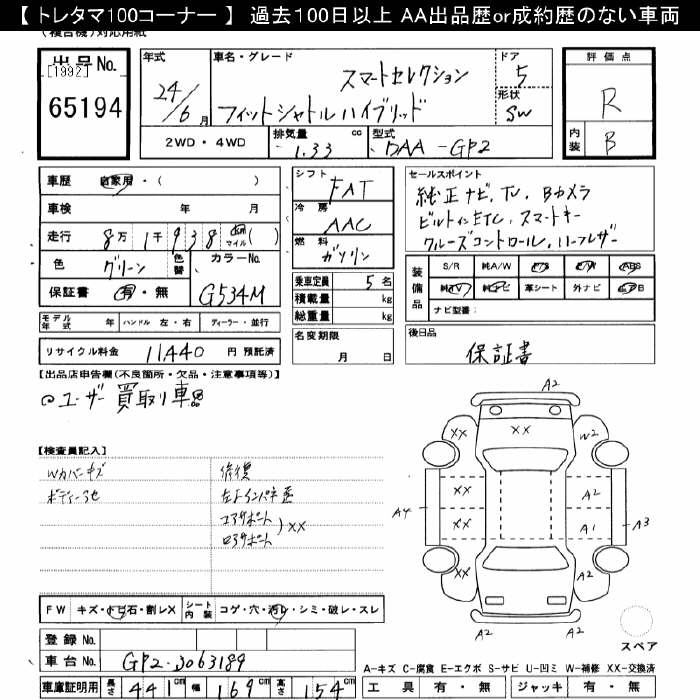 【 トレタマ100コーナー 】 過去100日以上 AA出品歴or成約歴のない車両
(複合機)対応用紙
出品No.
[1992]
65194
年式
24/6月
車名・グレード
スマートセレクション
フィットシャトルハイブリッド
ドア
5
形状
SW
評価点
R
内装
B
2WD・4WD
排気量
1.33 cc
型式
DAA-GP2
車歴 自家用・( )
車検 年 月
走行 8万1千938 km マイル( )
色 グリーン
色替
カラーNo.
G534M
保証書 有・無
シフト
FAT
冷房
AAC
燃料
ガソリン
乗車定員 5名
積載量 kg
総重量 kg
セールスポイント
純正ナビ、TV、Bカメラ
ビルトインETC、スマートキー
クルーズコントロール、ハーフレザー
装備品
S/R 純A/W P/S P/W ABS
純TV 純ナビ 革シート 外ナビ エアB
ナビ型番:
モデル年式 年 ハンドル 左・右 ディーラー・並行
名変期限
月 日
後日品
保証書
リサイクル料金 11440 円 預託済
【出品店申告欄(不良箇所・欠品・注意事項等)】
◎ユーザー買取り車
【検査員記入】
Wカバーキズ
修復
左インパネ
コアサポート
ロアサポート
XX
A2
XX
XX
W2
XX
A2
A4
XX
A1
A3
XX
A2
A2
A2
スペア
FW キズ・トビ石・割レX
シート内装 コゲ・穴・汚レ・シミ・破レ・スレ
登録No.
車台No. GP2-3063189
車庫証明用 長さ 441cm 幅 169cm 高さ 154cm
A-キズ C-腐食 E-エクボ S-サビ U-凹ミ W-補修 XX-交換済
工具 有・無 ジャッキ 有・無